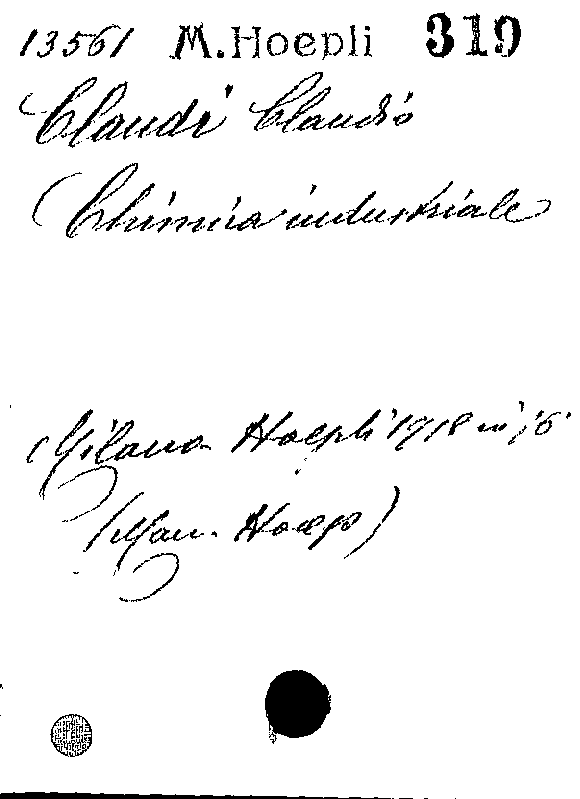 13561 M. Hoepli 319
Claudi Claudio
Chimica industriale
Milano Hoepli 1918 in 16°
(Man. Hoepl)